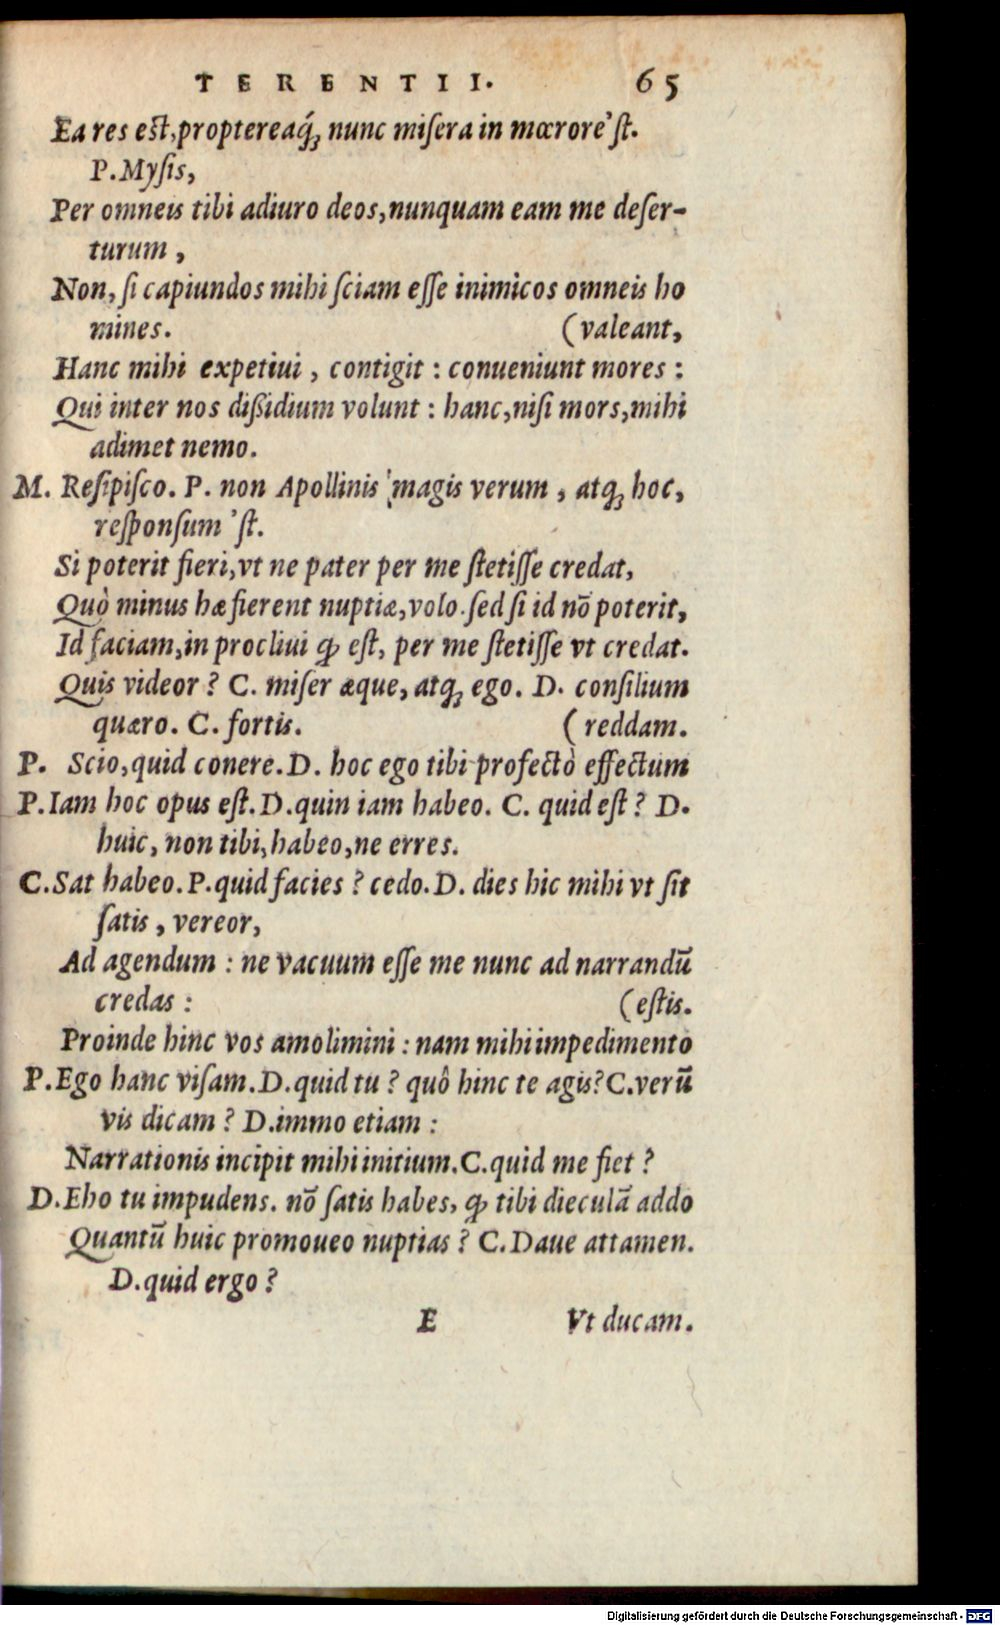 TERENTII. 65
Ea res est, proptereaq́ꝫ nunc miſera in mœrore'ſt.
P. Myſis,
Per omneis tibi adiuro deos, nunquam eam me deſer-
turum,
Non, ſi capiundos mihi ſciam eſſe inimicos omneis ho
mines. (valeant,
Hanc mihi expetiui, contigit: conueniunt mores:
Qui inter nos dißidium volunt: hanc, niſi mors, mihi
adimet nemo.
M. Reſipiſco. P. non Apollinis magis verum, atqꝫ hoc,
reſponſum 'ſt.
Si poterit fieri, vt ne pater per me ſtetiſſe credat,
Quò minus hæ fierent nuptiæ, volo. ſed ſi id nō poterit,
Id faciam, in procliui ꝙ eſt, per me ſtetiſſe vt credat.
Quis videor? C. miſer æque, atqꝫ ego. D. conſilium
quæro. C. fortis. (reddam.
P. Scio, quid conere. D. hoc ego tibi profectò effectum
P. Iam hoc opus eſt. D. quin iam habeo. C. quid eſt? D.
huic, non tibi, habeo, ne erres.
C. Sat habeo. P. quid facies? cedo. D. dies hic mihi vt ſit
ſatis, vereor,
Ad agendum: ne vacuum eſſe me nunc ad narrandū
credas: (eſtis.
Proinde hinc vos amolimini: nam mihi impedimento
P. Ego hanc viſam. D. quid tu? quô hinc te agis? C. verū
vis dicam? D. immo etiam:
Narrationis incipit mihi initium. C. quid me fiet?
D. Eho tu impudens. nō ſatis habes, ꝙ tibi dieculā addo
Quantū huic promoueo nuptias? C. Daue attamen.
D. quid ergo?
E Vt ducam.
Digitalisierung gefördert durch die Deutsche Forschungsgemeinschaft - DFG